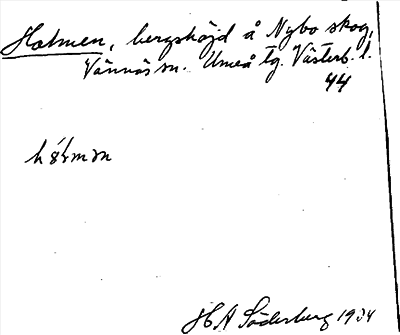 Holmen, bergshöjd å Nybo skog,
Vännäs sn. Umeå tg. Västerb. l.
44
H A Söderberg 1934